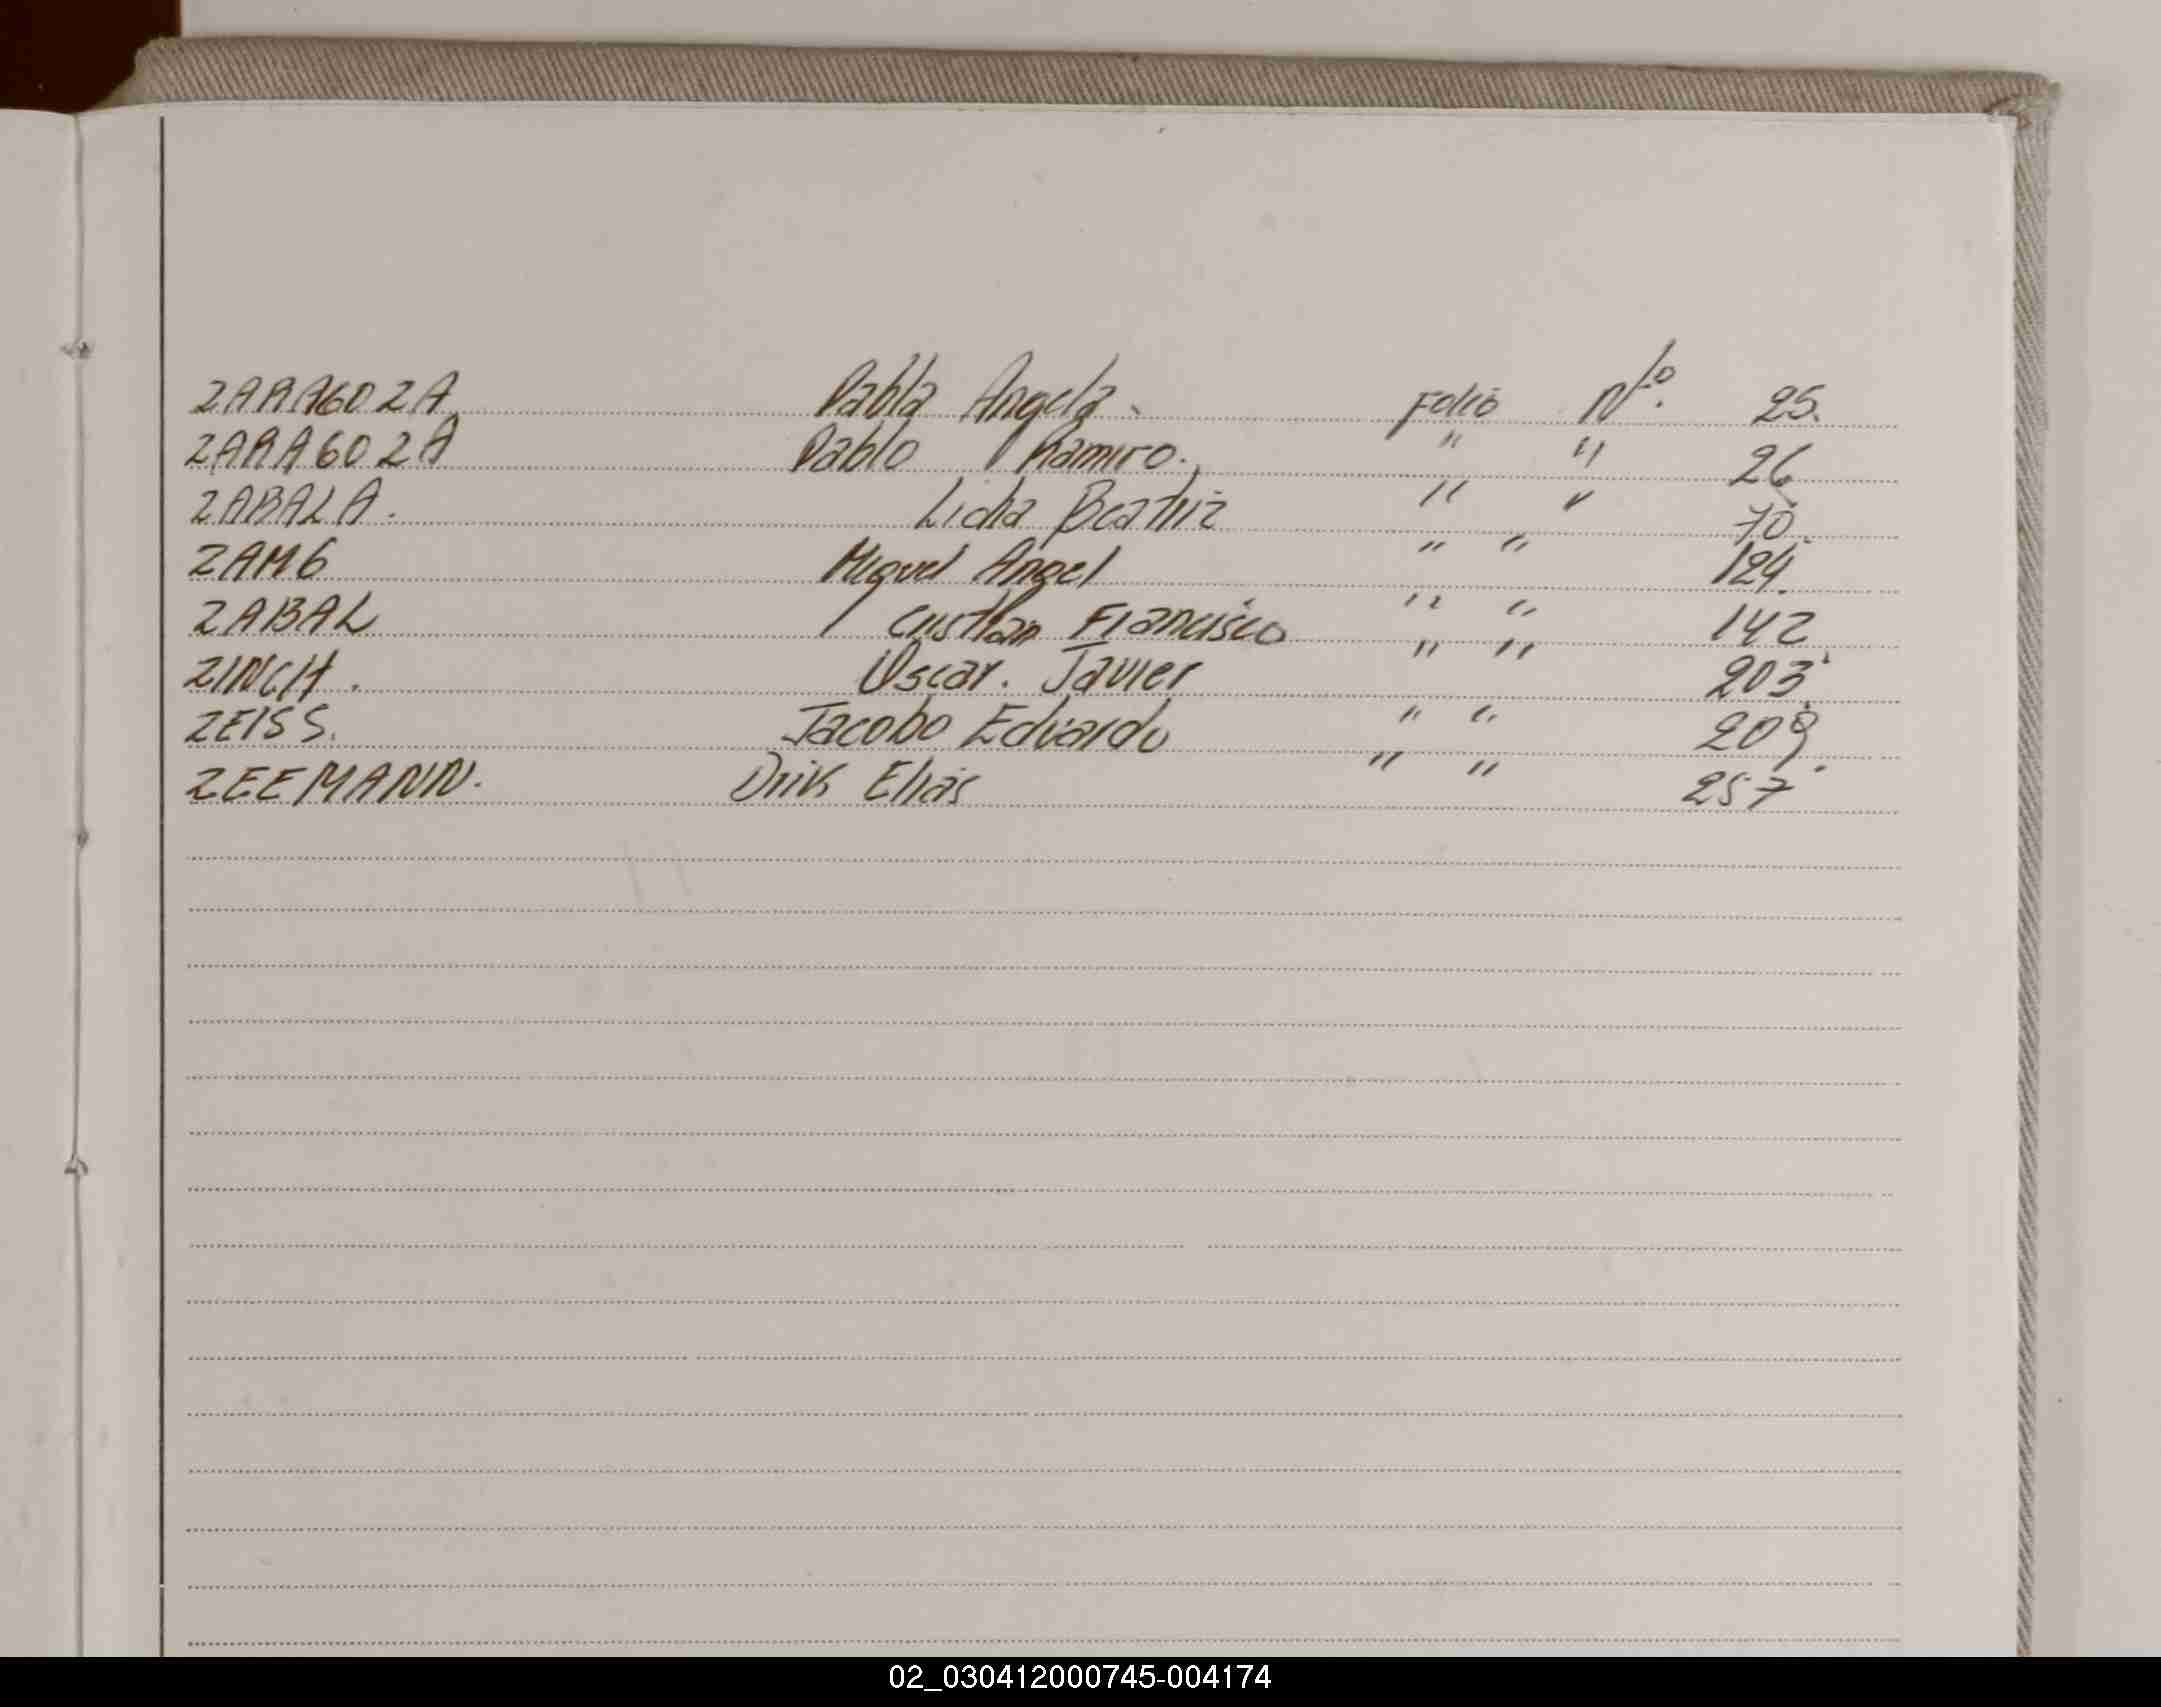 ZARAGOZA Pabla Angela. Folio Nro. 25.
ZARAGOZA Pablo Ramiro. " " 26
ZABALA. Lidia Beatriz " " 70.
ZAMG Miguel Angel " " 124.
ZABAL Cristian Francisco " " 142
ZINCH. Oscar. Javier " " 203.
ZEISS. Jacobo Eduardo " " 209.
ZEEMANN. Dirk Elias " " 257
02_030412000745-004174